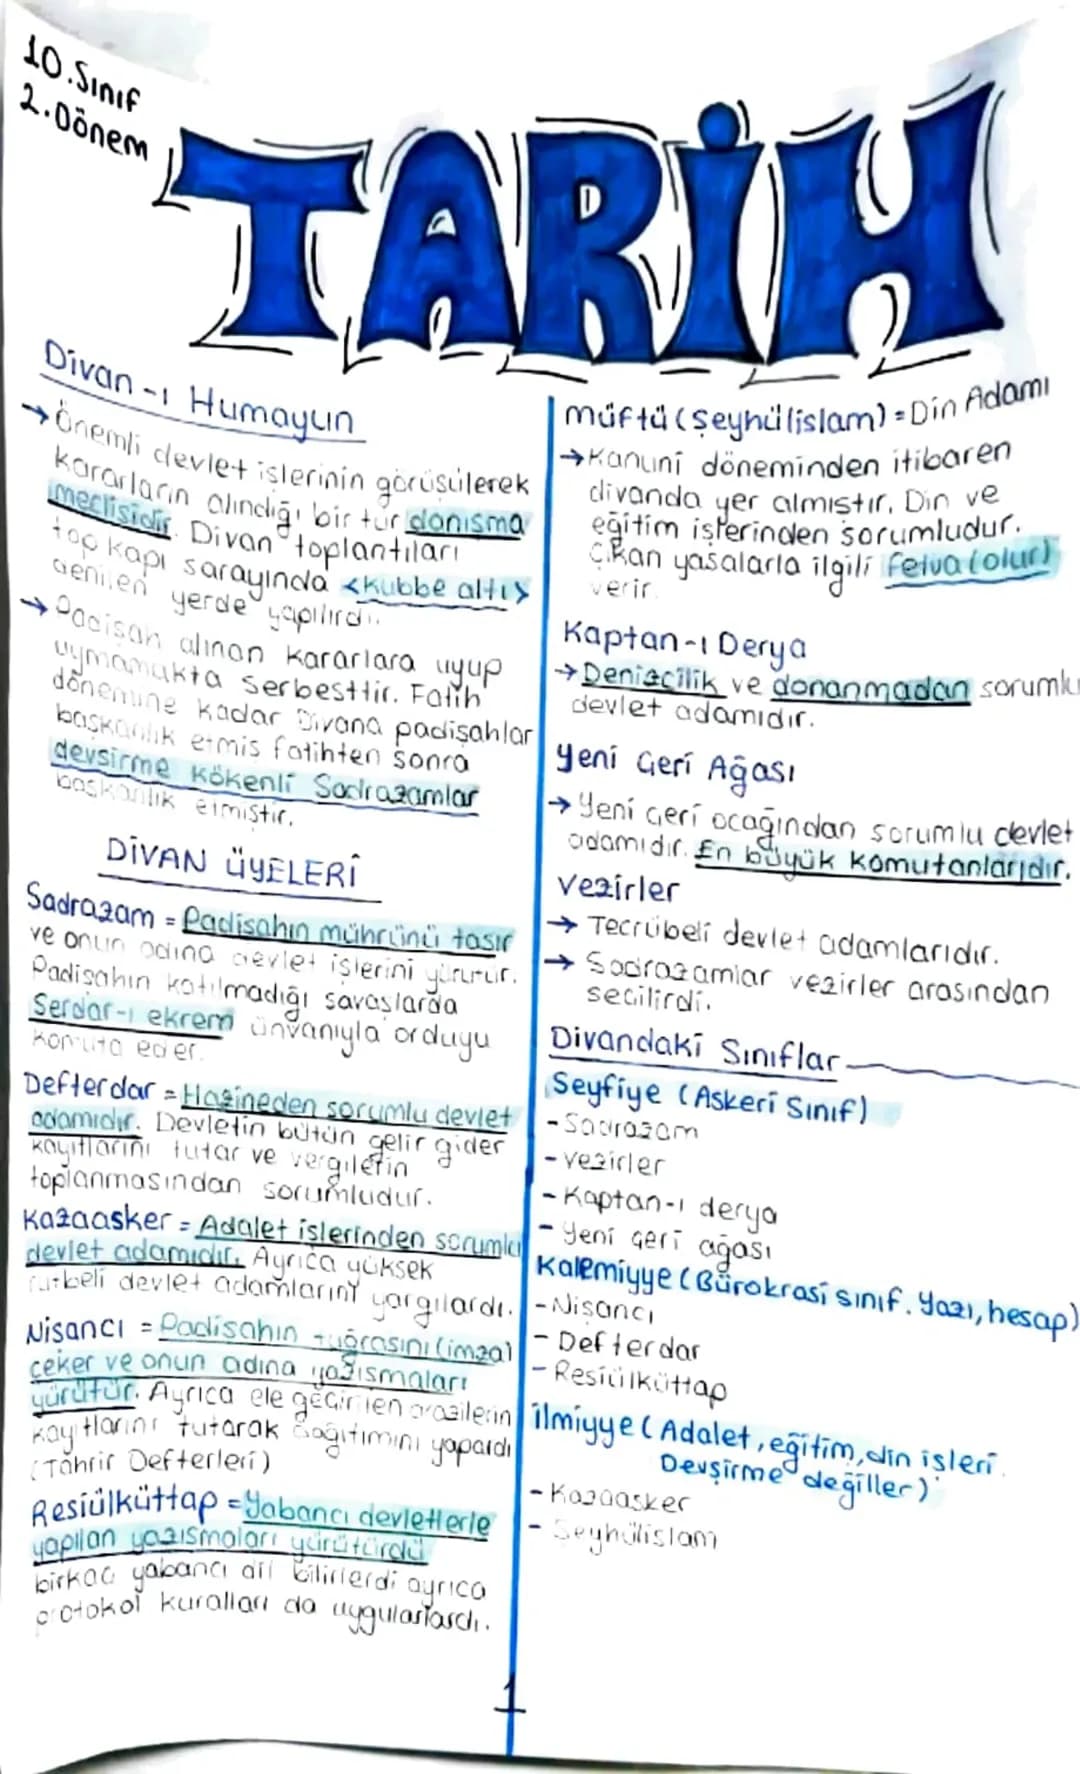 10.Sınıf
2.Dönem
TARİH
Divan-ı Humayun
→Önemli devlet işlerinin görüşülerek
kararların alındığı bir tür danışma
meclisidir. Divan toplantıları
top kapı sarayında <kubbe altı>
denilen yerde yapılırdı.
→Padişah alınan kararlara uyup
uymamakta serbesttir. Fatih
dönemine kadar Divana padişahlar
başkanlık etmiş fatihten sonra
devşirme kökenli Sadrazamlar
başkanlık etmiştir.
DİVAN ÜYELERİ
Sadrazam = Padişahın mührünü taşır
ve onun adına devlet işlerini yürütür.
Padişahın katılmadığı savaşlarda
Serdar-ı ekrem ünvanıyla orduyu
komuta eder.
Defterdar = Hazineden sorumlu devlet
adamıdır. Devletin bütün gelir gider
kayıtlarını tutar ve vergilerin
toplanmasından sorumludur.
Kazaasker = Adalet işlerinden sorumlu
devlet adamıdır. Ayrıca yüksek
rütbeli devlet adamlarını yargılardı.
Nişancı = Padişahın tuğrasını (imza)
çeker ve onun adına yazışmaları
yürütür. Ayrıca ele geçirilen arazilerin
kayıtlarını tutarak dağıtımını yapardı
(Tahrir Defterleri)
Resiülküttap = Yabancı devletlerle
yapılan yazışmaları yürütürdü
birkaç yabancı dil bilirlerdi ayrıca
protokol kuralları da uygularlardı.
müftü (Şeyhülislam) = Din Adamı
→Kanuni döneminden itibaren
divanda yer almıştır. Din ve
eğitim işlerinden sorumludur.
Çıkan yasalarla ilgili fetva (olur)
verir.
Kaptan-ı Derya
→Denizcilik ve donanmadan sorumlu
devlet adamıdır.
Yeni Çeri Ağası
→Yeni çeri ocağından sorumlu devlet
adamıdır. En büyük komutanlarıdır.
Vezirler
→ Tecrübeli devlet adamlarıdır.
→ Sadrazamlar vezirler arasından
seçilirdi.
Divandaki Sınıflar
Seyfiye (Askeri Sınıf)
-Sadrazam
-vezirler
-Kaptan-ı derya
-Yeni çeri ağası
Kalemiyye (Bürokrasi sınıf. Yazı, hesap)
-Nişancı
-Defterdar
-Resiülküttap
ilmiyye (Adalet, eğitim, din işleri.
Devşirme değiller)
-Kazaasker
-Şeyhülislam
1